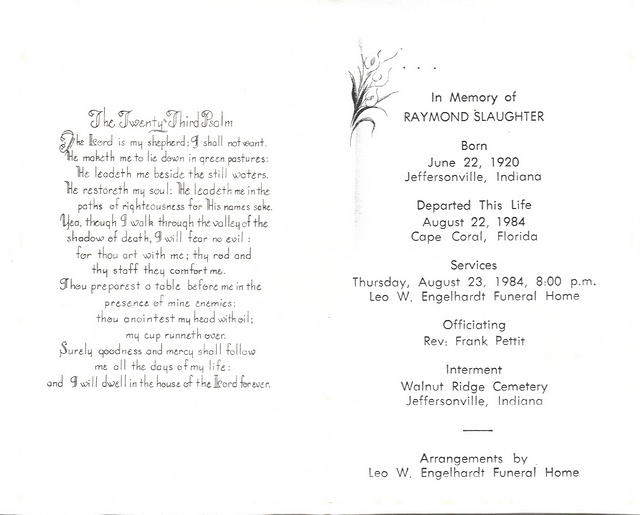 The Twenty-Third Psalm
The Lord is my shepherd; I shall not want.
He maketh me to lie down in green pastures:
He leadeth me beside the still waters.
He restoreth my soul: He leadeth me in the
paths of righteousness for His names sake.
Yea, though I walk through the valley of the
shadow of death, I will fear no evil :
for thou art with me; thy rod and
thy staff they comfort me.
Thou preparest a table before me in the
presence of mine enemies:
thou anointest my head with oil;
my cup runneth over.
Surely goodness and mercy shall follow
me all the days of my life:
and I will dwell in the house of the Lord forever.
In Memory of
RAYMOND SLAUGHTER
Born
June 22, 1920
Jeffersonville, Indiana
Departed This Life
August 22, 1984
Cape Coral, Florida
Services
Thursday, August 23, 1984, 8:00 p.m.
Leo W. Engelhardt Funeral Home
Officiating
Rev: Frank Pettit
Interment
Walnut Ridge Cemetery
Jeffersonville, Indiana
Arrangements by
Leo W. Engelhardt Funeral Home